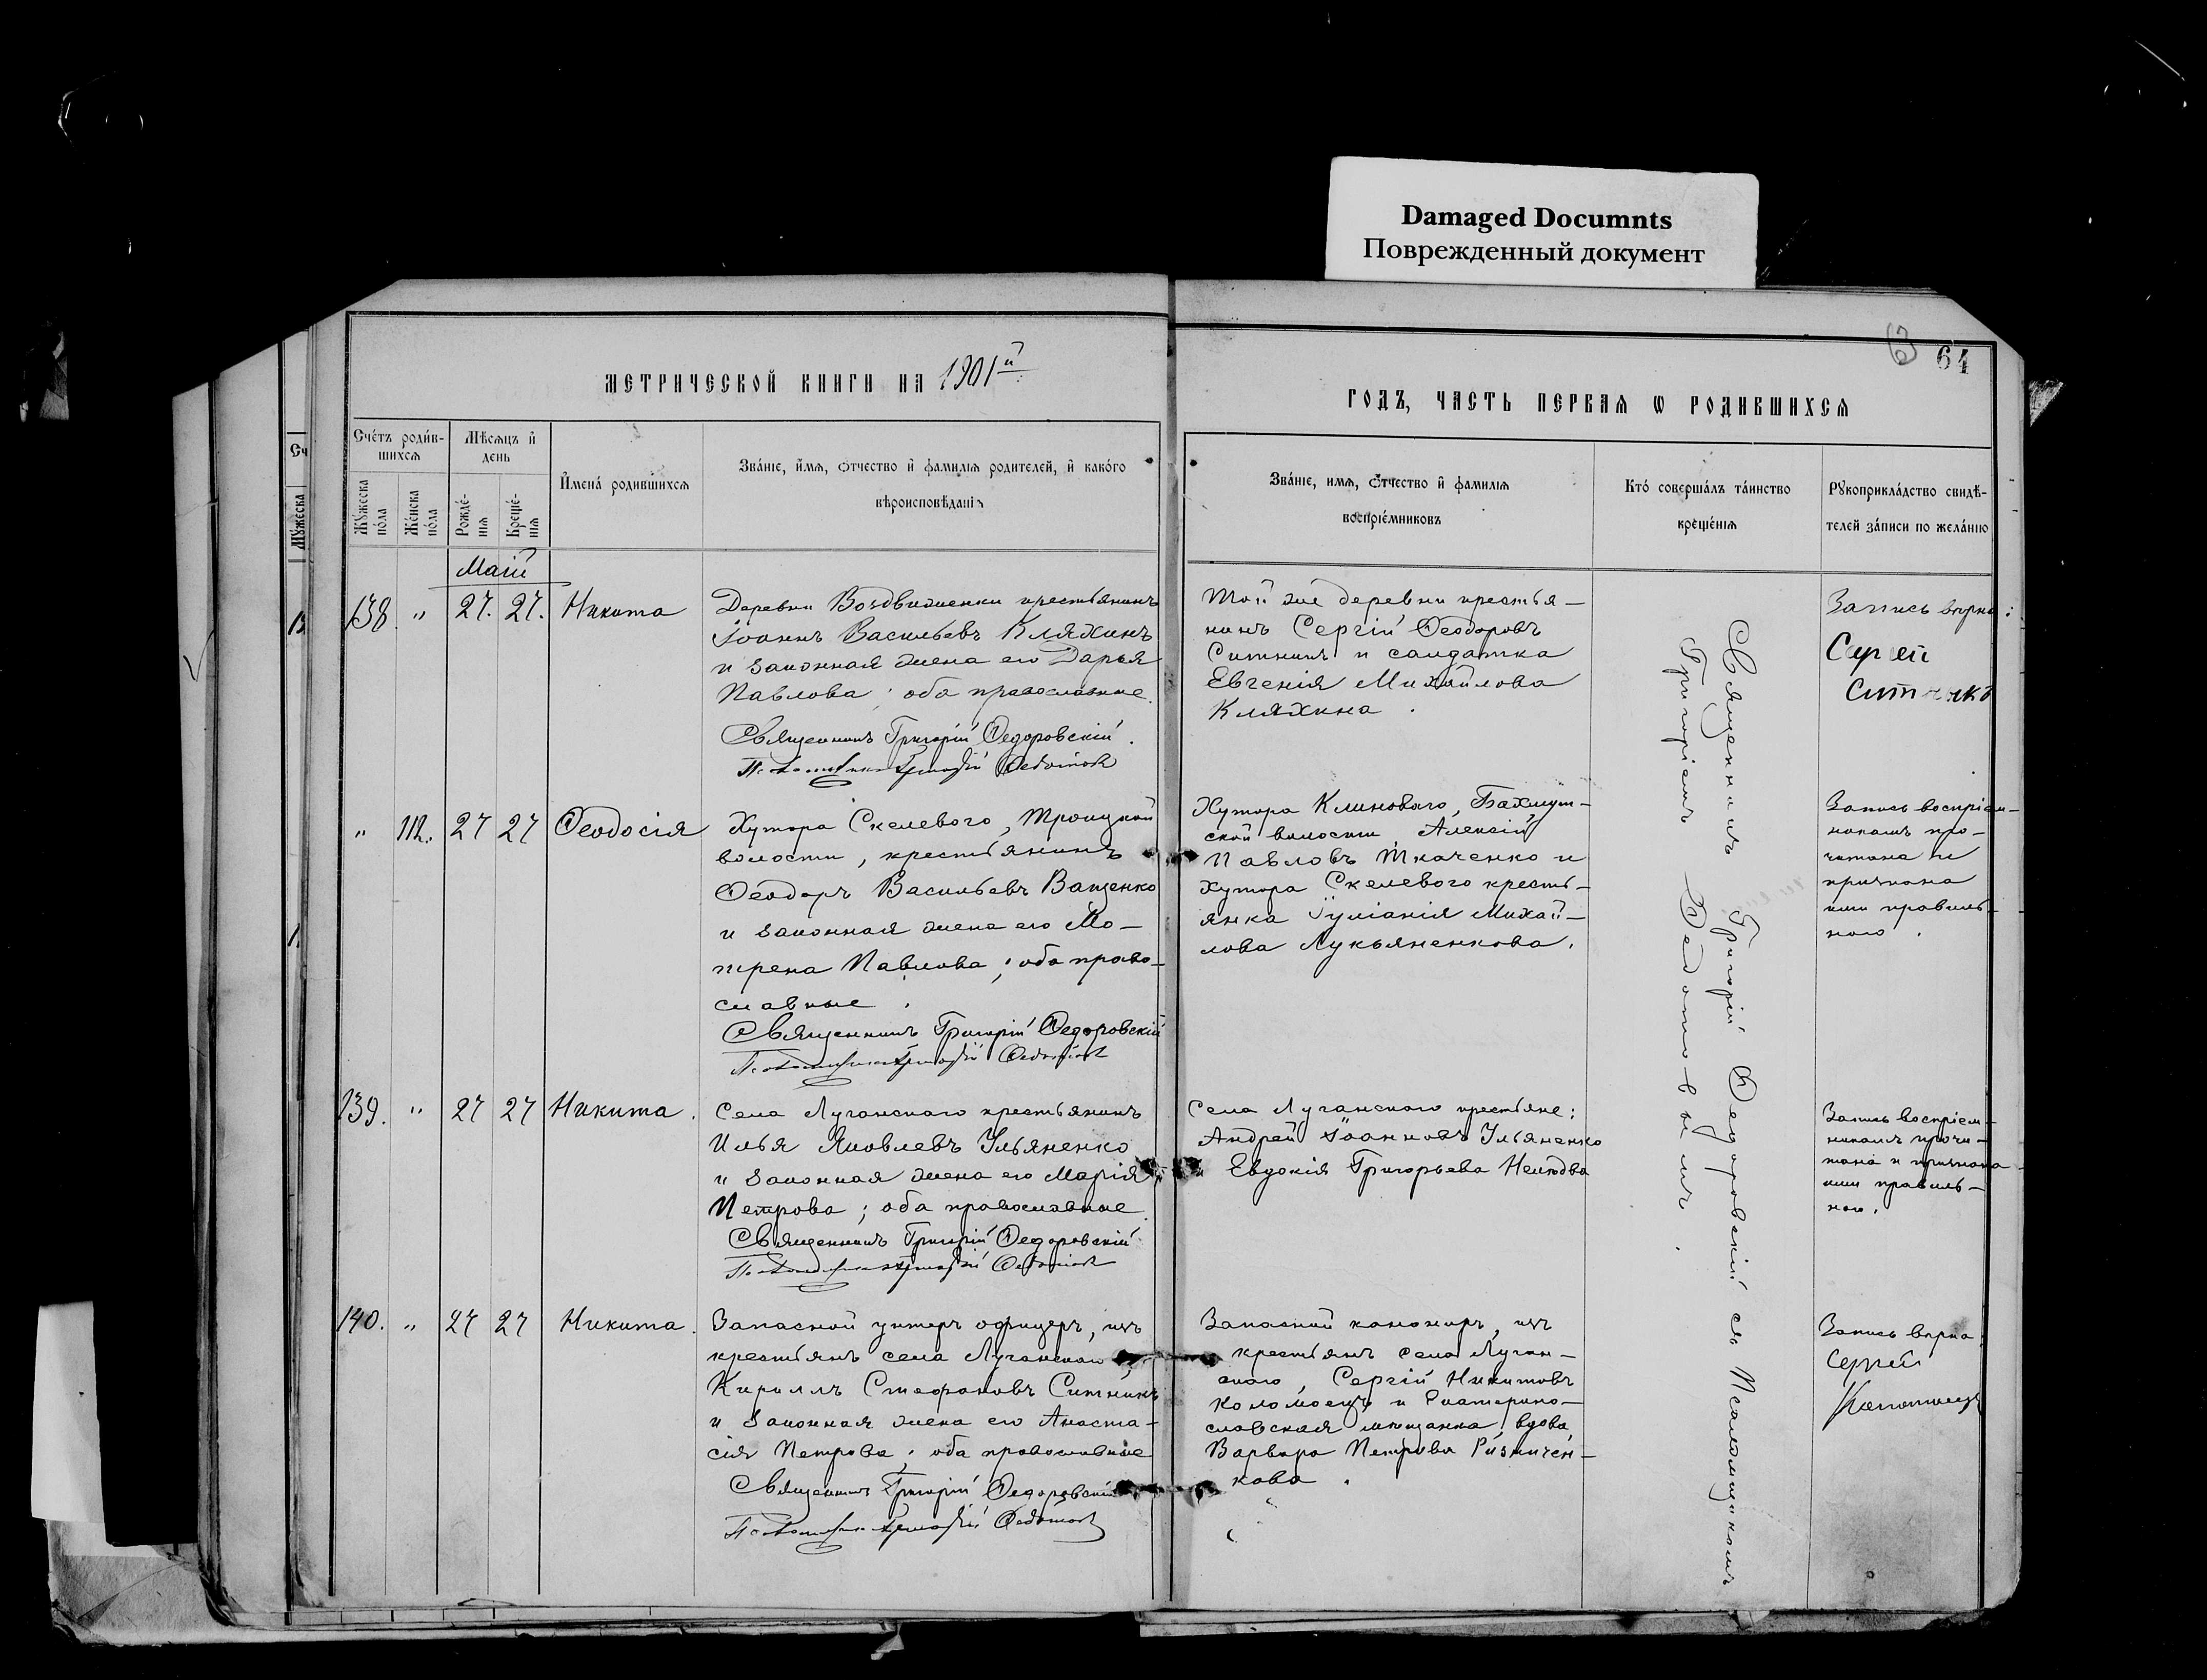 Damaged Documnts
Поврежденный документ
63
64
МЕТРИЧЕСКОЙ КНИГИ НА 1901й
ГОДЪ, ЧАСТЬ ПЕРВАѦ Ѡ РОДИВШИХСѦ
Счётъ роди́в-
шихсѧ
Мѣ́сѧцъ и҆
день
Мꙋ́жеска
по́ла
Же́нска
по́ла
Рожде́-
нїѧ
Креще́-
нїѧ
И҆мена̀ роди́вшихсѧ
Зва́нїе, и҆́мѧ, ѻ҆́тчество и҆ фами́лїѧ роди́телей, и҆ како́го
вѣроисповѣ́данїѧ
Зва́нїе, и҆́мѧ, ѻ҆́тчество и҆ фами́лїѧ
воспрїе́мниковъ
Кто̀ соверша́лъ та́инство
креще́нїѧ
Рꙋкоприкла́дство свидѣ́-
телей за́писи по жела́нїю
Маій
138. " 27. 27. Никита
Деревни Воздвиженки крестьянинъ
Іоаннъ Васильевъ Кляхинъ
и законная жена его Дарья
Павлова; оба православные.
Священникъ Григорій Ѳедоровскій.
Псаломщикъ Григорій Ѳедотовъ
Той же деревни крестья-
нинъ Сергій Ѳеодоровъ
Ситникъ и солдатка
Евгенія Михайлова
Кляхина.
Запись вѣрна:
Сергей
" 112. 27 27 Ѳеодосія
Хутора Скелевого, Троицкой
волости, крестьянинъ
Ѳеодоръ Васильевъ Ващенко
и законная жена его Мо-
трена Павлова; оба право-
славные.
Священникъ Григорій Ѳедоровскій
Псаломщикъ Григорій Ѳедотовъ
Хутора Клинового, Бахмут-
ской волости Алексій
Павловъ Ткаченко и
хутора Скелевого кресть-
янка Іуліанія Михай-
лова Лукьяненкова.
Запись воспріем-
никамъ про-
читана и
признана
ими правиль-
ною.
139. " 27 27 Никита.
Села Луганскаго крестьянинъ
Илья Яковлевъ Ульяненко
и законная жена его Марія
Петрова; оба православные.
Священникъ Григорій Ѳедоровскій
Псаломщикъ Григорій Ѳедотовъ
Села Луганскаго крестьяне:
Андрей Іоанновъ Ульяненко
и Евдокія Григорьева
Запись воспріем-
никамъ прочи-
тана и признана
ими правиль-
ною.
140. " 27 27 Никита.
Запасной унтеръ офицеръ, изъ
крестьянъ села Луганскаго
Кириллъ Стефановъ Ситникъ
и законная жена его Анаста-
сія Петрова; оба православные
Священникъ Григорій Ѳедоровскій
Псаломщикъ Григорій Ѳедотовъ
Запасной канониръ, изъ
крестьянъ села Луган-
скаго, Сергій Никитовъ
Коломоецъ и Екатерино-
славская мѣщанка, вдова
Варвара Петрова Ризничен-
кова.
Запись вѣрна:
Сергей
Коломоецъ
Священникъ Григорій Ѳедоровскій съ Псаломщикомъ
Григоріемъ Ѳедотовымъ.